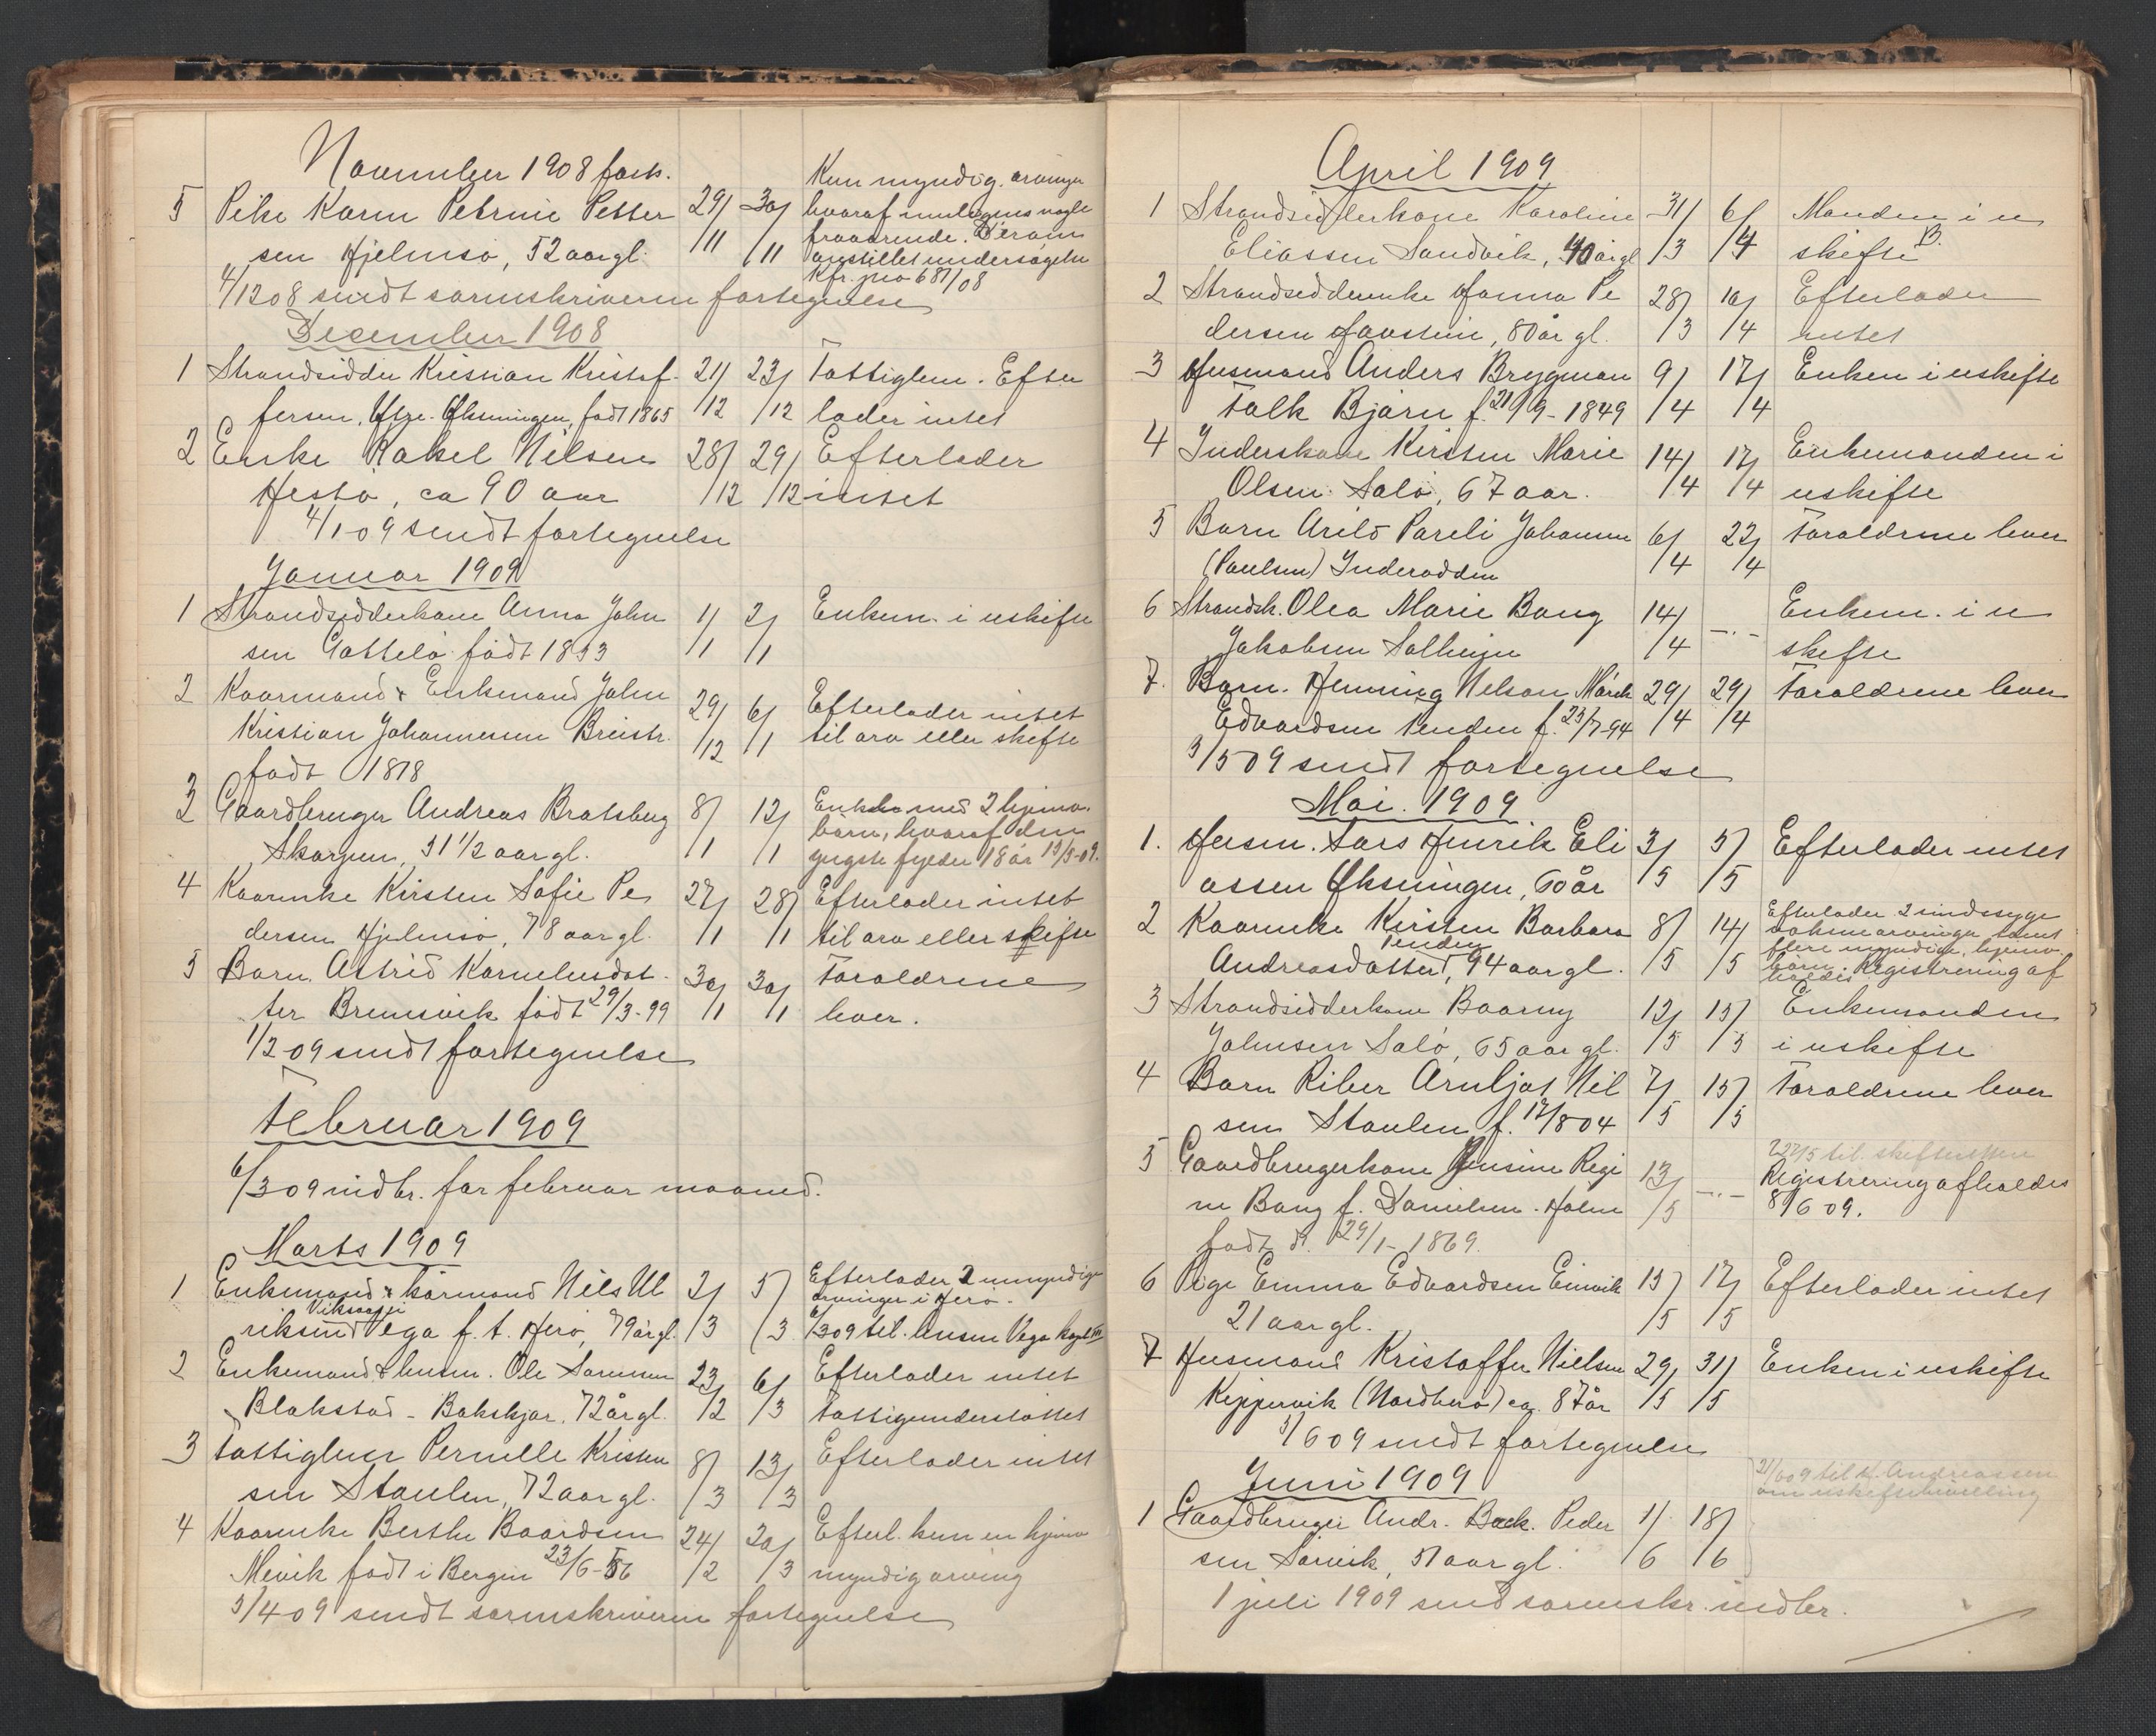 November 1908 forts.
5 Pike Karen Petrine Petter 29/ 30/ Kun myndig. arvinger
sen Hjelmsø, 52 aar gl. /11 /11 hvoraf muligens nogle
fraværende. Derom
anstillet undersøgelse
Kfr. jno 681/08
4/12 08 sendt sorenskriveren fortegnelse
December 1908
1 Strandsidder Kristian Kristof- 21/ 23/ Fattiglem. Efter
fersen, Øksningen, født 1865 /12 /12 lader intet
2 Enke Rakel Nilsen 28/ 29/ Efterlader
Hestø, ca 90 aar /12 /12 intet
4/1 09 sendt fortegnelse
Januar 1909
1 Strandsidderkone Anna John 1/ 2/ Enkem. i uskifte
sen Gåsselø født 1853 /1 /1
2 Kaarmand & Enkemand John 29/ 6/ Efterlader intet
Kristian Johannesen Breistr. /12 /1 til arv eller skifte
født 1818
3 Gaardbruger Andreas Bratsberg 8/ 12/ Enke med 2 hjemv.
Skarpen, 51 1/2 aar gl. /1 /1 børn, hvoraf den
yngste fylder 18 år 15/3-09.
4 Kaarenke Kirsten Sofie Pe 27/ 28/ Efterlader intet
dersen Hjelmsø, 78 aar gl. /1 /1 til arv eller skifte
5 Barn. Astrid Kornelusdat- 30/ 30/ Forældrene
ter Bremsvik født 29/3-99 /1 /1 lever.
1/2 09 sendt fortegnelse
Februar 1909
6/3 09 indbr. for februar maaned.
Marts 1909
1 Enkemand & kårmand Nils Ul 2/ 5/ Efterlader 2 umyndige
riksen Viksaas Vega f. t. Herø, 79 år gl. /3 /3 arvinger i Herø.
6/3 09 til lensm Vega
2 Enkemand & husm. Ole Sørensen 23/ 6/ Efterlader intet
Blokstad - Bakskjær, 72 år gl. /2 /3 fattigunderstøttet
3 Fattiglem Pernille Kristen 8/ 13/ Efterlader intet
sen Staulen, 72 aar gl. /3 /3
4 Kaarenke Berthe Baardsen 24/ 20/ Efterl. kun en hjemv
Meivik født i Bergen 23/6-56 /2 /3 myndig arving
5/4 09 sendt sorenskriveren fortegnelse
April 1909
1 Strandsidderkone Karoline 31/ 6/ Manden i u
Eliassen Sandvik, 40 år gl /3 /4 skifte B.
2 Strandsidderenke Hanna Pe 28/ 10/ Efterlader
dersen Havstein, 80 år gl. /3 /4 intet
3 Husmand Anders Brygman 9/ 17/ Enken i uskifte
Falk Bjørn f. 21/9-1849 /4 /4
4 Inderskone Kirsten Marie 14/ 17/ Enkemanden i
Olsen Salø, 67 aar. /4 /4 uskifte
5 Barn Arild Pareli Johansen 6/ 22/ Forældrene lever
(Paulsen) Inderodden /4 /4
6 Strandsk. Olea Marie Bang 14/ -"- Enkem. i u
Jakobsen Salhusjen /4 skifte
7. Barn. Henning Nelson Mårck 29/ 29/ Forældrene lever
Edvardsen Tenden f. 23/7-94 /4 /4
3/5 09 sendt fortegnelse
Mai. 1909
1. Husm. Lars Henrik Eli 3/ 5/ Efterlader intet
assen Øksningen, 60 år /5 /5
2 Kaarenke Kirsten Barbara 8/ 14/ Efterlader 2 sindssyge
Andreasdatter Tenden, 94 aar gl. /5 /5 arvinger samt
flere myndige hjemv.
børn. Registrering af
holdes
3 Strandsidderkone Baarny 12/ 15/ Enkemanden
Johnsen Salø, 65 aar gl. /5 /5 i uskifte
4 Barn Riber Arnljot Nil 7/ 15/ Forældrene lever
sen Staulen f. 17/8 04 /5 /5
5 Gaardbrugerkone Jensine Regi 13/ -"- 22/5 til skifteretten
ne Bang f. Danielsen. Holm /5 Registrering afholdes
født d. 29/1-1869. 8/6 09.
6 Pige Emma Edvardsen Einvik 15/ 17/ Efterlader intet
21 aar gl. /5 /5
7 Husmand Kristoffer Nielsen 29/ 31/ Enken i uskifte
Kippervik (Nordherø) ca. 87 år /5 /5
3/6 09 sendt fortegnelse
Juni 1909 21/6 09 til H. Andreassen
om uskiftebevilling
1 Gaardbruger Andr. Back. Peder 1/ 18/
sen Sørvik, 51 aar gl. /6 /6
1 juli 1909 send sorenskr. indbr.